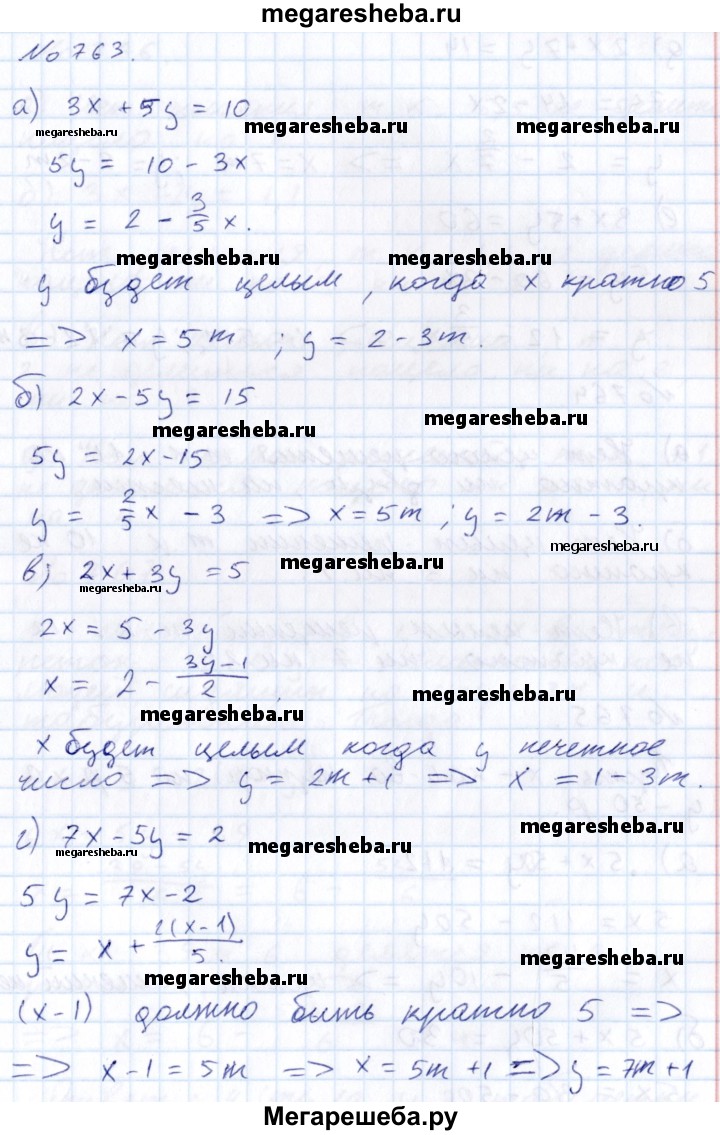 megaresheba.ru
No 763.
а) 3x + 5y = 10
megaresheba.ru megaresheba.ru megaresheba.ru
5y = 10 - 3x
y = 2 - 3/5 x.
megaresheba.ru megaresheba.ru
y будет целым, когда x кратно 5
=> x = 5m ; y = 2 - 3m.
б) 2x - 5y = 15
megaresheba.ru megaresheba.ru
5y = 2x - 15
y = 2/5 x - 3 => x = 5m ; y = 2m - 3.
megaresheba.ru
в) 2x + 3y = 5
megaresheba.ru
2x = 5 - 3y
x = 2 - (3y - 1)/2
megaresheba.ru megaresheba.ru
x будет целым когда y нечетное
число => y = 2m + 1 => x = 1 - 3m.
г) 7x - 5y = 2
megaresheba.ru megaresheba.ru megaresheba.ru
5y = 7x - 2
y = x + 2(x - 1)/5.
megaresheba.ru megaresheba.ru
(x - 1) должно быть кратно 5 =>
=> x - 1 = 5m => x = 5m + 1 => y = 7m + 1
Мегарешеба.ру